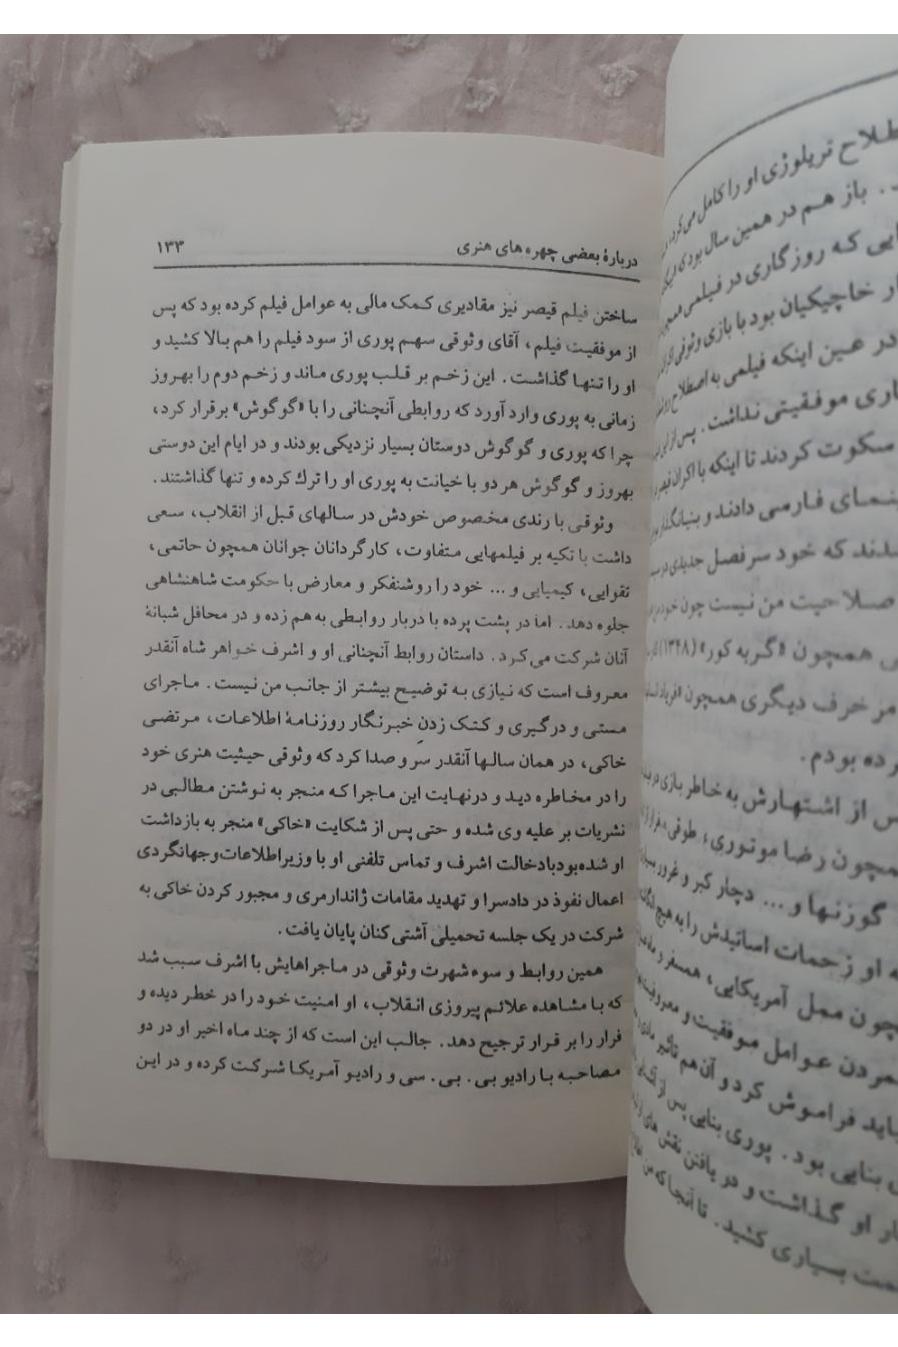 دربارهٔ بعضی چهره‌های هنری ۱۳۳
ساختن فیلم قیصر نیز مقادیری کمک مالی به عوامل فیلم کرده بود که پس
از موفقیت فیلم، آقای وثوقی سهم پوری از سود فیلم را هم بالا کشید و
او را تنها گذاشت. این زخم بر قلب پوری ماند و زخم دوم را بهروز
زمانی به پوری وارد آورد که روابطی آنچنانی را با «گوگوش» برقرار کرد،
چرا که پوری و گوگوش دوستان بسیار نزدیکی بودند و در ایام این دوستی
بهروز و گوگوش هر دو با خیانت به پوری او را ترك کرده و تنها گذاشتند.
وثوقی با رندی مخصوص خودش در سالهای قبل از انقلاب، سعی
داشت با تکیه بر فیلمهایی متفاوت، کارگردانان جوانان همچون حاتمی،
تقوایی، کیمیایی و ... خود را روشنفکر و معارض با حکومت شاهنشاهی
جلوه دهد. اما در پشت پرده با دربار روابطی به هم زده و در محافل شبانهٔ
آنان شرکت می‌کرد. داستان روابط آنچنانی او و اشرف خواهر شاه آنقدر
معروف است که نیازی به توضیح بیشتر از جانب من نیست. ماجرای
مستی و درگیری و کتک زدنِ خبرنگار روزنامهٔ اطلاعات، مرتضی
خاکی، در همان سالها آنقدر سر و صدا کرد که وثوقی حیثیت هنری خود
را در مخاطره دید و درنهایت این ماجرا که منجر به نوشتن مطالبی در
نشریات بر علیه وی شده و حتی پس از شکایت «خاکی» منجر به بازداشت
او شده‌بود‌بادخالت اشرف و تماس تلفنی او با وزیراطلاعات‌وجهانگردی
اعمال نفوذ در دادسرا و تهدید مقامات ژاندارمری و مجبور کردن خاکی به
شرکت در یک جلسه تحمیلی آشتی کنان پایان یافت.
همین روابط و سوء شهرت وثوقی در ماجراهایش با اشرف سبب شد
که با مشاهده علائم پیروزی انقلاب، او امنیت خود را در خطر دیده و
فرار را بر قرار ترجیح دهد. جالب این است که از چند ماه اخیر او در دو
مصاحبه با رادیو بی. بی. سی و رادیو آمریکا شرکت کرده و در این
تریلوژی او را کامل می‌کرد،
باز هم در همین سال بود
که روزگاری در فیلمی
خاچیکیان بود با بازی وثوقی
در عین اینکه فیلمی به اصطلاح
موفقیتی نداشت. پس از
سکوت کردند تا اینکه با اکران
فارسی دادند و بنیانگذار
که خود سرفصل جدیدی در
صلاحیت من نیست چون خود
همچون «گربه کور» (۱۳۴۸)
حرف دیگری همچون «فریاد
بودم.
از اشتهارش به خاطر بازی در
رضا موتوری، طوقی،
گوزنها و ... دچار کبر و غرور
او زحمات اساتیدش را به هیچ
ممل آمریکایی، همسفر و ماه
عوامل موفقیت و معروفیت
فراموش کرد و آن هم تأثیر
بنایی بود. پوری بنایی پس از
او گذاشت و در یافتن نقش های
بسیاری کشید. تا آنجا که من